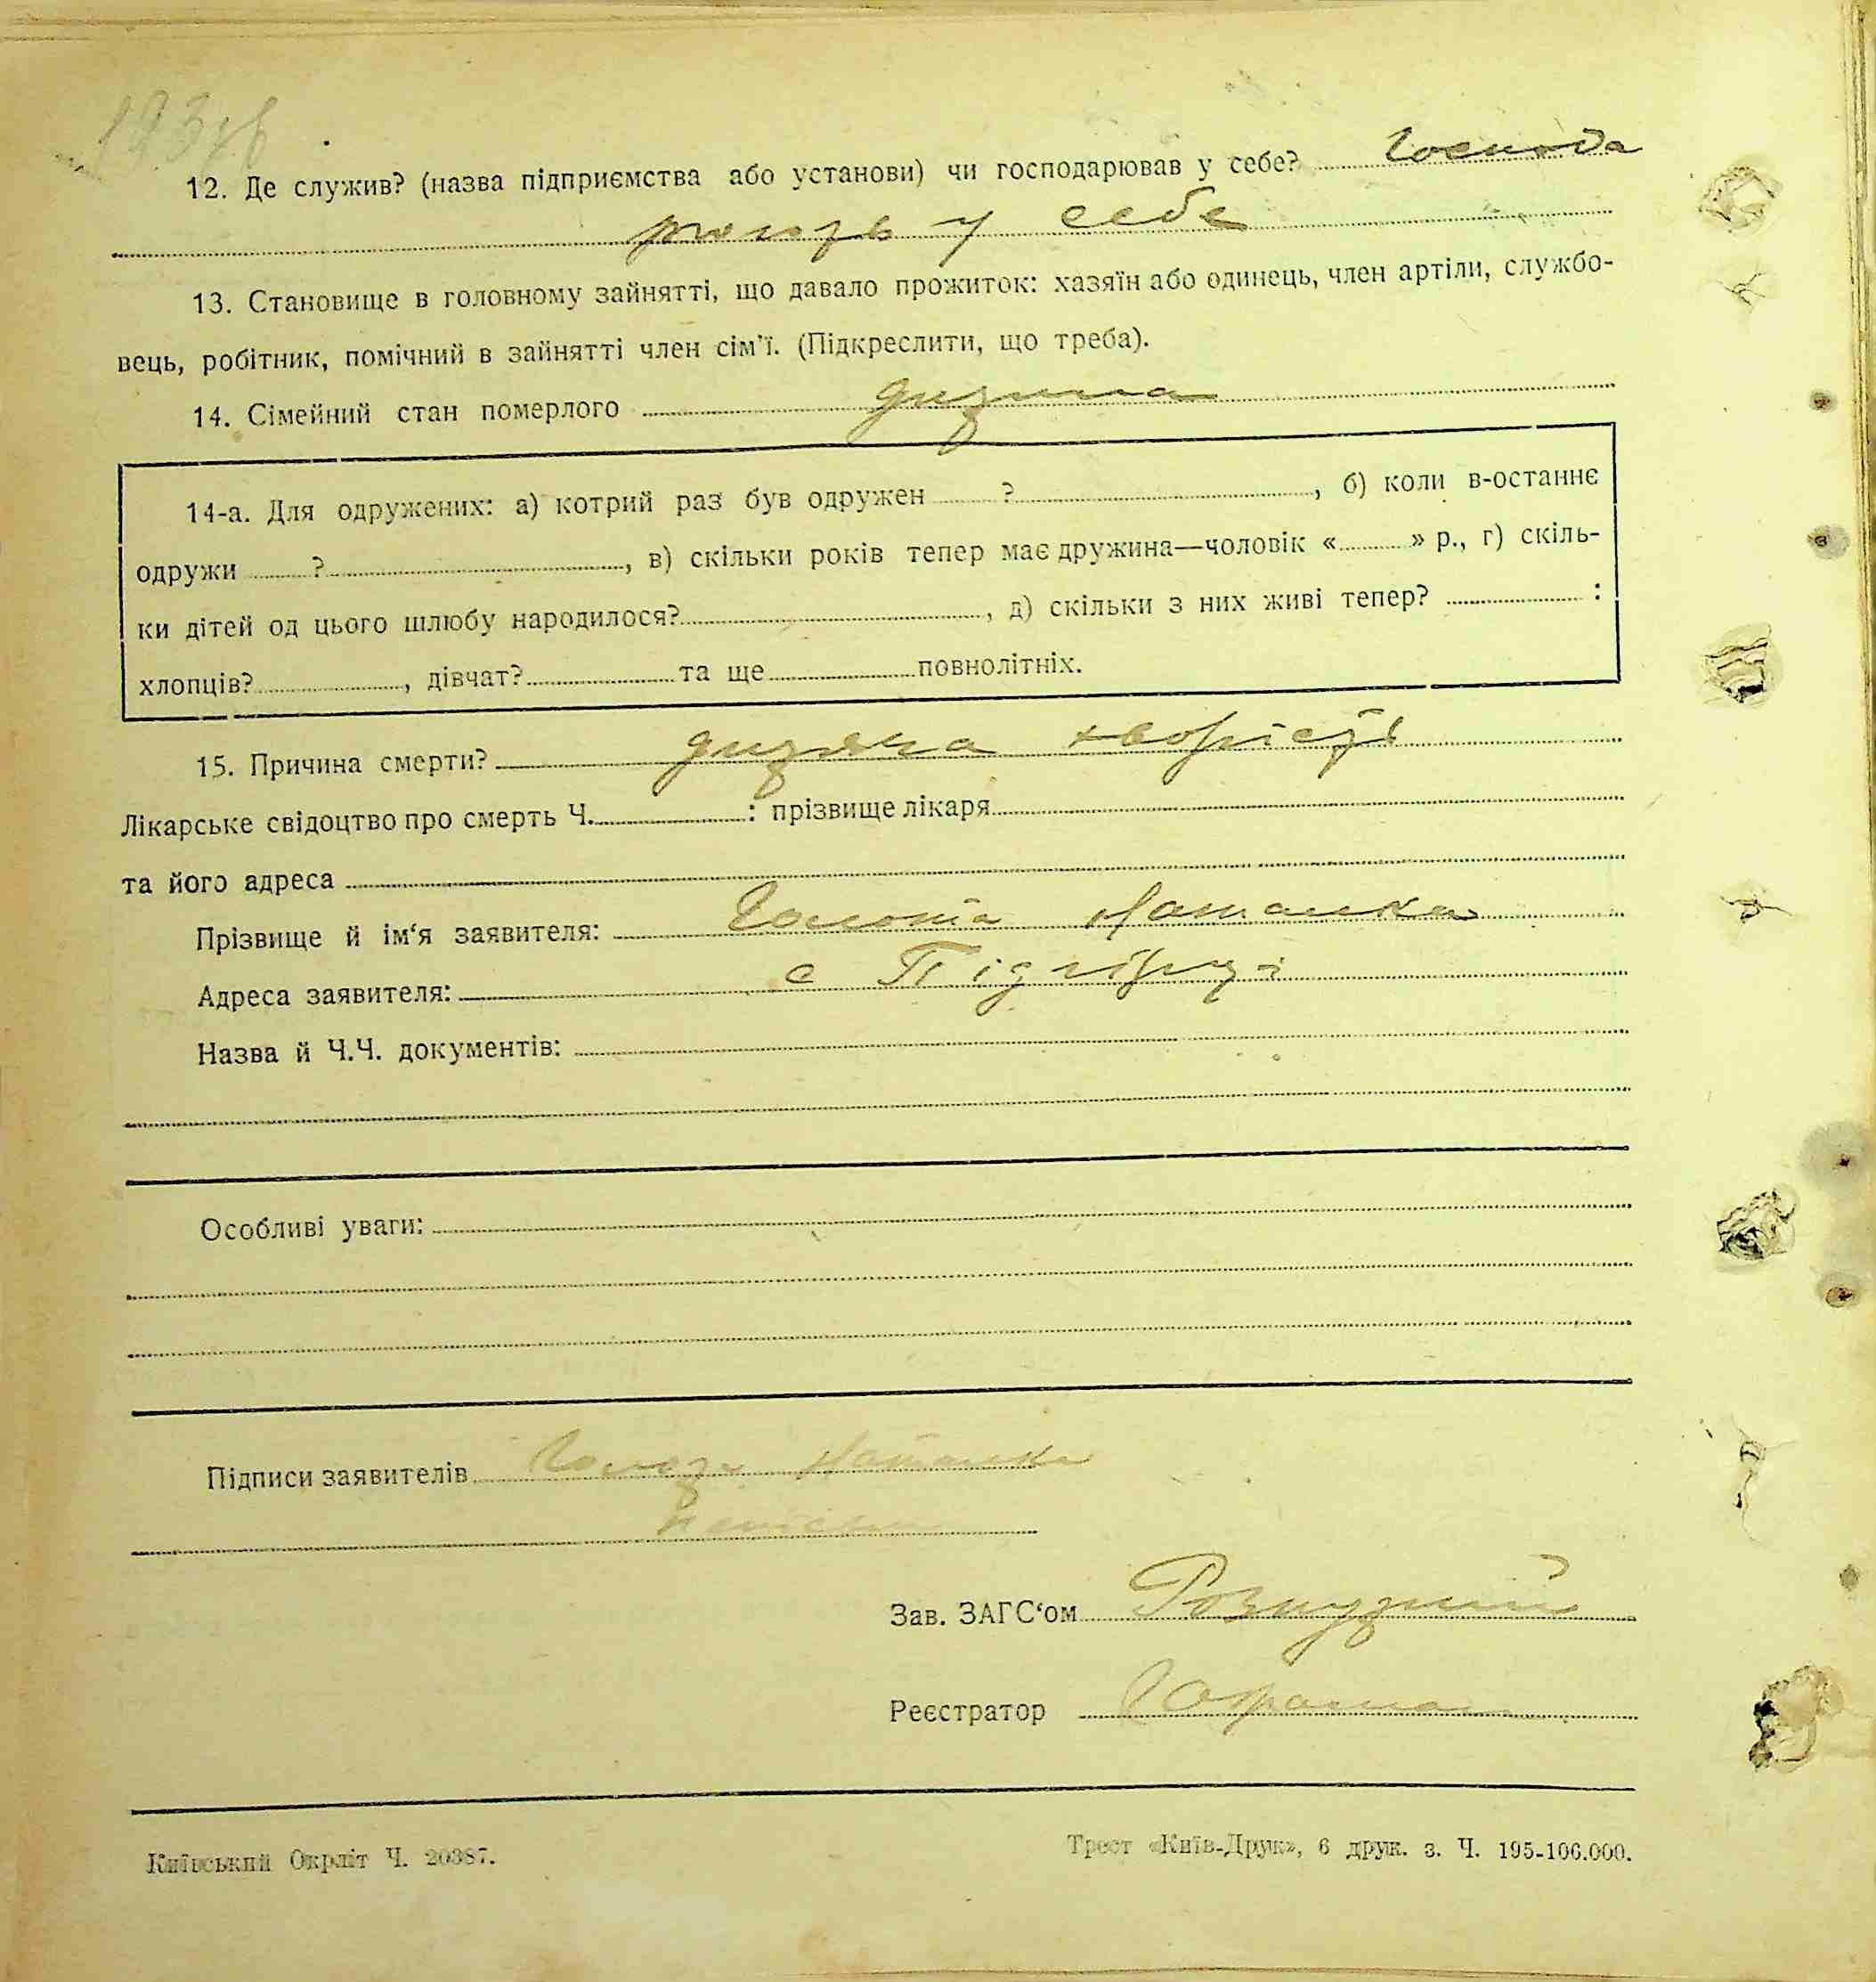 12. Де служив? (назва підприємства або установи) чи господарював у себе? Господа
рюють у себе
13. Становище в головному зайнятті, що давало прожиток: хазяїн або одинець, член артіли, службо-
вець, робітник, помічний в зайнятті член сім'ї. (Підкреслити, що треба).
14. Сімейний стан померлого дитина
14-а. Для одружених: а) котрий раз був одружен ?, б) коли в-останнє
одружи ?, в) скільки років тепер має дружина—чоловік « » р., г) скіль-
ки дітей од цього шлюбу народилося?, д) скільки з них живі тепер? :
хлопців?, дівчат? та ще повнолітніх.
15. Причина смерти? дитяча хворість
Лікарське свідоцтво про смерть Ч. : прізвище лікаря
та його адреса
Прізвище й ім'я заявителя: Голота Наталка
Адреса заявителя: с Підгірці
Назва й Ч.Ч. документів:
Особливі уваги:
Підписи заявителів Голота Наталка
Зав. ЗАГС'ом
Реєстратор
Київський Окрліт Ч. 20387.
Трест «Київ-Друк», 6 друк. з. Ч. 195-106.000.